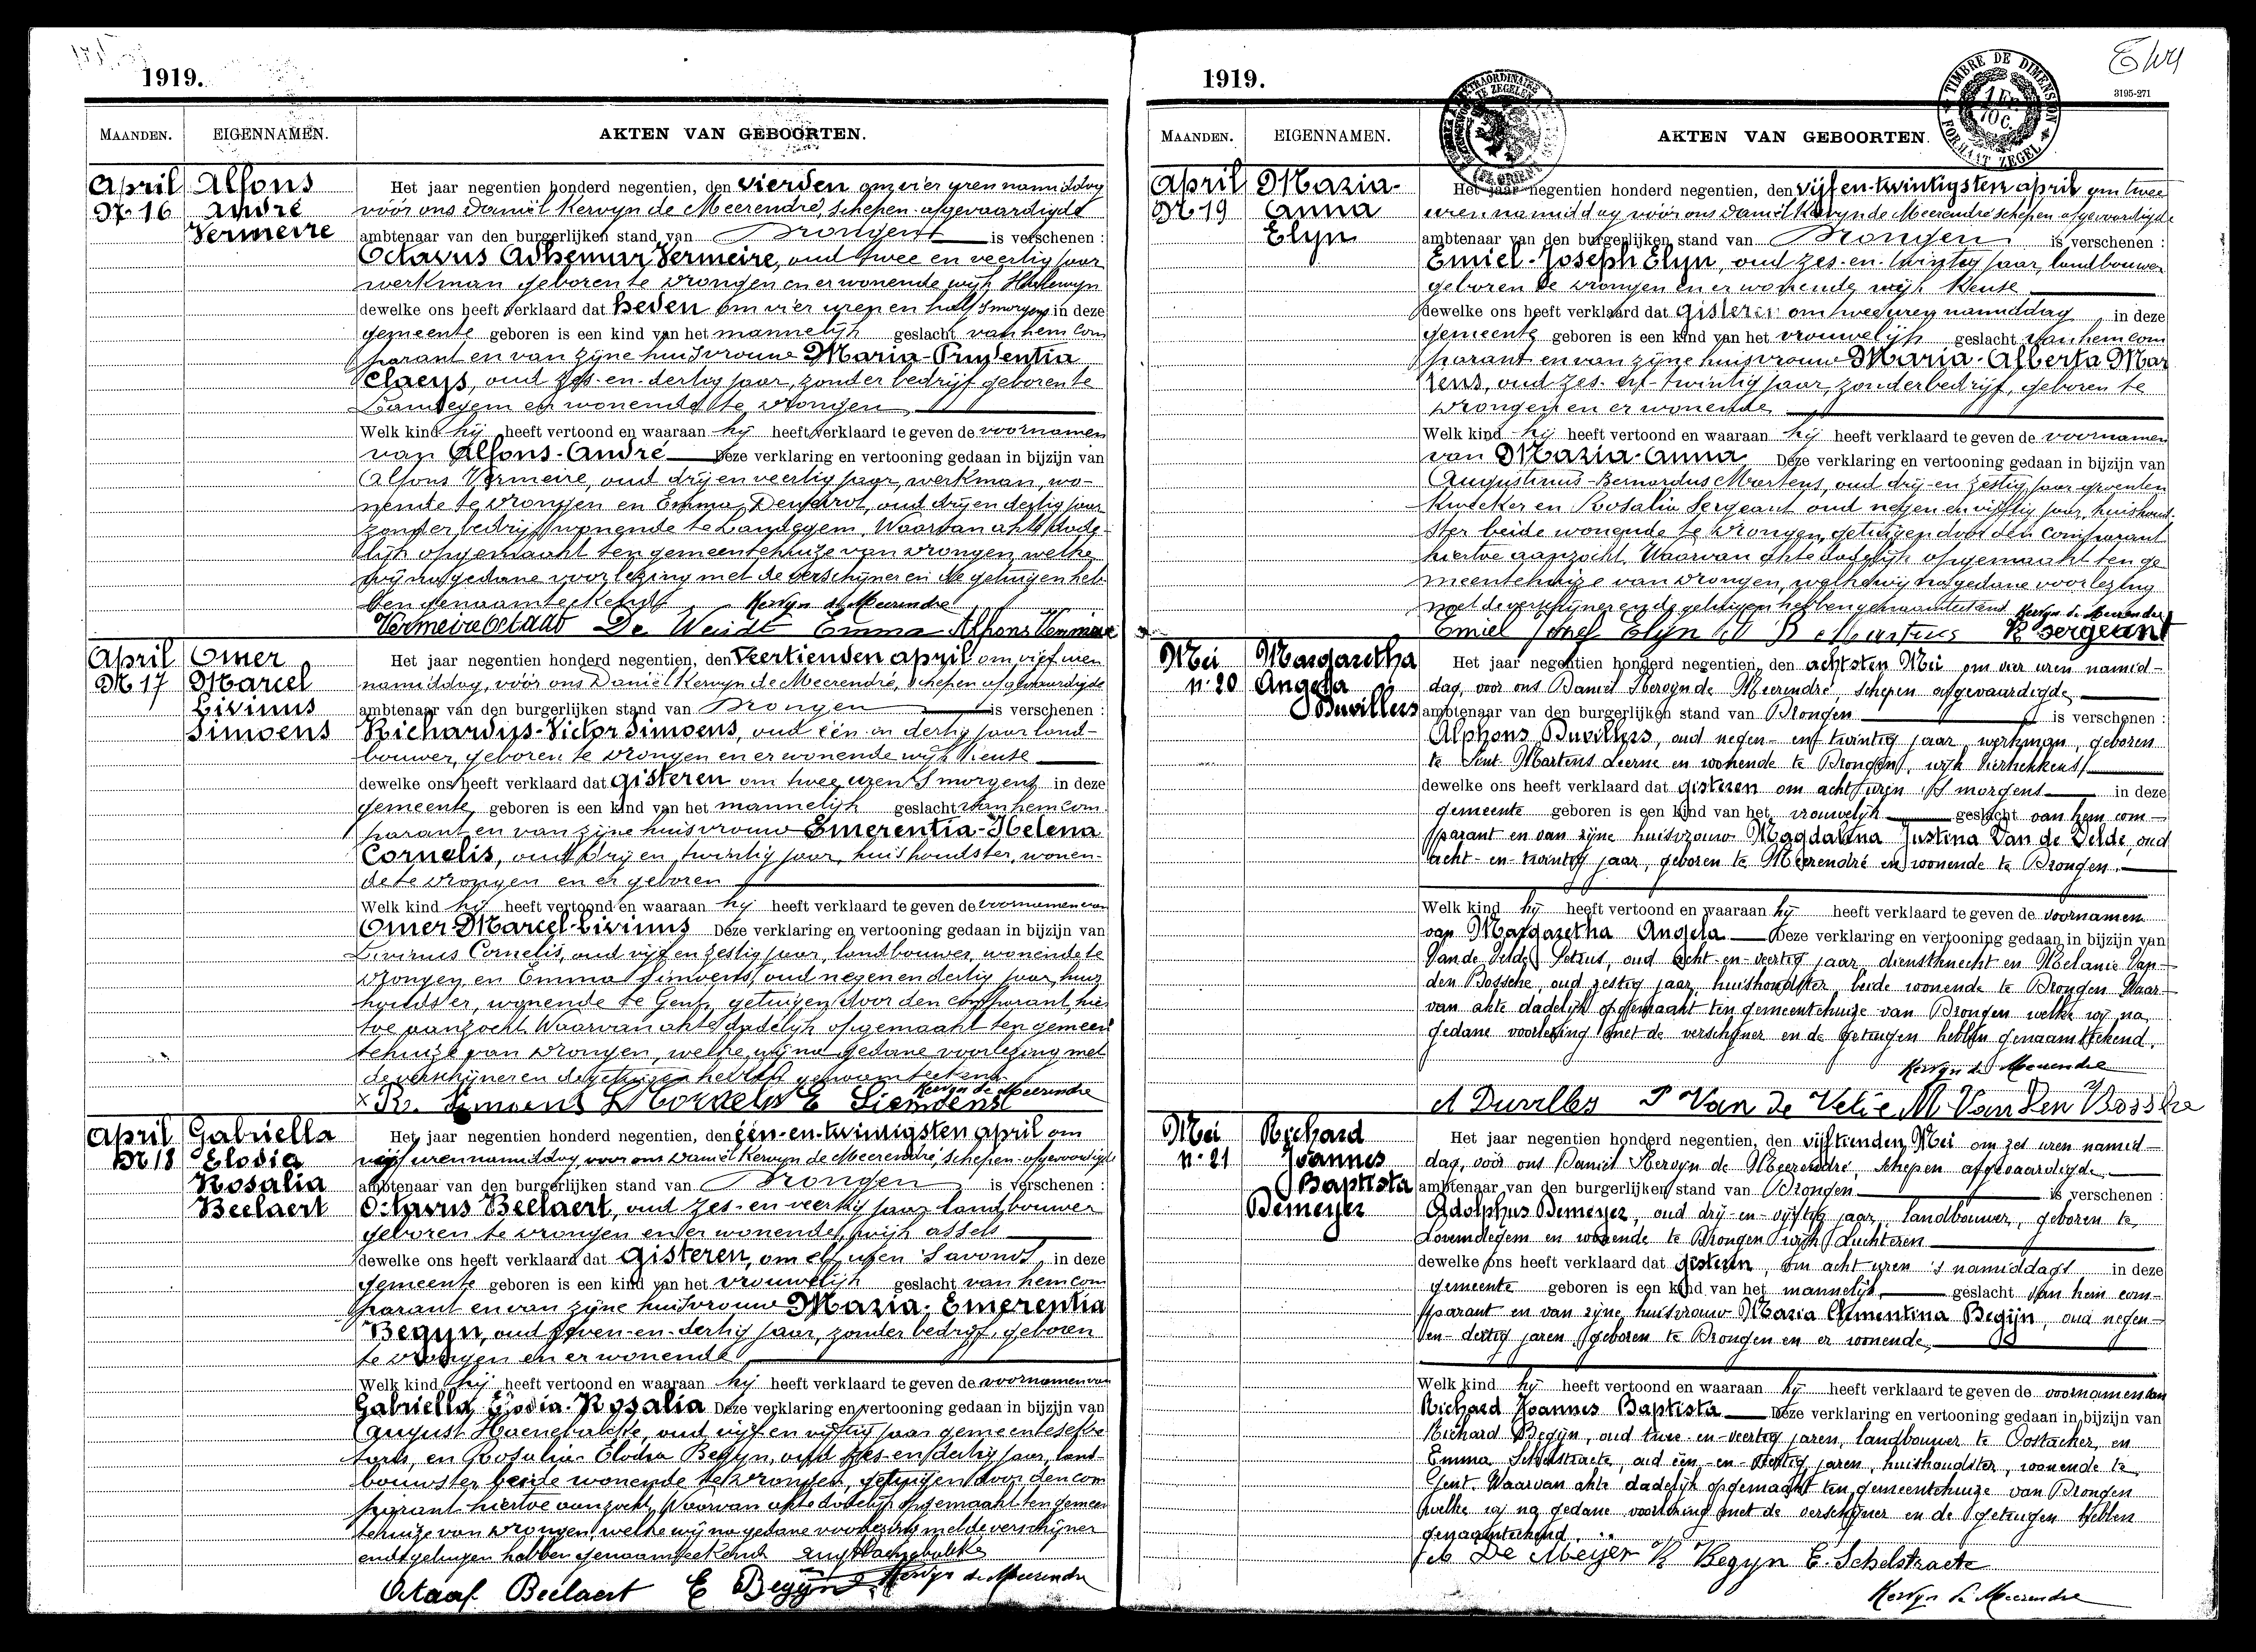 1919.
MAANDEN. EIGENNAMEN. AKTEN VAN GEBOORTEN.
April
Nr 16
Alfons
André
Vermeire
Het jaar negentien honderd negentien, den vierden om vier uren namiddag
vóór ons Daniël Kervyn de Meerendré, schepen afgevaardigde
ambtenaar van den burgerlijken stand van Drongen is verschenen :
Octavus Adhemar Vermeire, oud twee en veertig jaar
werkman geboren te Drongen en er wonende wijk
dewelke ons heeft verklaard dat heden om vier uren en half 's morgens in deze
gemeente geboren is een kind van het mannelijk geslacht van hem com
parant en van zijne huisvrouw Maria-Prudentia
Claeys, oud zes-en-dertig jaar, zonder bedrijf geboren te
Landegem en wonende te Drongen
Welk kind hij heeft vertoond en waaraan hij heeft verklaard te geven de voornamen
van Alfons-André Deze verklaring en vertooning gedaan in bijzijn van
Alfons Vermeire, oud drij en veertig jaar, werkman, wo-
nende te Drongen en Emma oud drij en dertig jaar
zonder bedrijf wonende te Landegem. Waarvan akte dade-
lijk opgemaakt ten gemeentehuize van Drongen, welke
wij na gedane voorlezing met de verschijner en de getuigen heb-
ben genaamteekend Kervyn de Meerendre
Vermeire Octaaf De Weirdt Emma Alfons Vermeire
April
Nr 17
Omer
Marcel
Livinus
Simoens
Het jaar negentien honderd negentien, den veertienden april om vijf uren
namiddag, vóór ons Daniël Kervyn de Meerendré, schepen afgevaardigde
ambtenaar van den burgerlijken stand van Drongen is verschenen :
Richardus-Victor Simoens, oud één en dertig jaar land-
bouwer, geboren te Drongen en er wonende wijk Keuse
dewelke ons heeft verklaard dat gisteren om twee uren 's morgens in deze
gemeente geboren is een kind van het mannelijk geslacht van hem com
parant en van zijne huisvrouw Emerentia-Helena
Cornelis, oud drij en twintig jaar, huishoudster, wonen-
de te Drongen en er geboren
Welk kind hij heeft vertoond en waaraan hij heeft verklaard te geven de voornamen van
Omer-Marcel-Livinus Deze verklaring en vertooning gedaan in bijzijn van
Livinus Cornelis, oud vijf en zestig jaar, landbouwer, wonende te
Drongen en Emma Simoens, oud negen en dertig jaar, huis
houdster, wonende te Gent, getuigen door den comparant, hier
toe aanzocht. Waarvan akte dadelijk opgemaakt ten gemeen
tehuize van Drongen, welke wij na gedane voorlezing met
de verschijner en de getuigen hebben genaamteekend.
Kervyn de Meerendre
R. Simoens L Cornelis E Siemoens
April
Nr 18
Gabriella
Elodia
Rosalia
Beelaert
Het jaar negentien honderd negentien, den één-en-twintigsten april om
vijf uren namiddag, voor ons Daniël Kervyn de Meerendré, schepen afgevaardigde
ambtenaar van den burgerlijken stand van Drongen is verschenen :
Octavus Beelaert, oud zes-en veertig jaar landbouwer
geboren te Drongen en er wonende, wijk assels
dewelke ons heeft verklaard dat gisteren, om elf uren 's avonds, in deze
gemeente geboren is een kind van het vrouwelijk geslacht van hem com
parant en van zijne huisvrouw Maria-Emerentia
Begijn, oud zeven-en-dertig jaar, zonder bedrijf, geboren
te Drongen en er wonende
Welk kind hij heeft vertoond en waaraan hij heeft verklaard te geven de voornamen van
Gabriella Elodia-Rosalia Deze verklaring en vertooning gedaan in bijzijn van
August Haenebalcke, oud vijf en vijftig jaar gemeentesekre
taris, en Rosalia-Elodia Begijn, oud zes-en dertig jaar, land-
bouwster, beide wonende te Drongen, getuigen door den com
parant hiertoe aanzocht. Waarvan akte dadelijk opgemaakt ten gemeen
tehuize van Drongen, welke wij na gedane voorlezing met de verschijner
en de getuigen hebben genaamteekend Aug Haenebalcke
Octaaf Beelaert E Begijn Kervyn de Meerendre
1919.
TIMBRE DE DIMENSION
FORMAAT ZEGEL
3195-271
MAANDEN. EIGENNAMEN. AKTEN VAN GEBOORTEN.
April
Nr 19
Maria-
Anna
Elyn
Het jaar negentien honderd negentien, den vijf en twintigsten april om twee
uren namiddag vóór ons Daniël Kervyn de Meerendré schepen afgevaardigde
ambtenaar van den burgerlijken stand van Drongen is verschenen :
Emiel-Joseph Elyn, oud zes-en-twintig jaar, landbouwer
geboren te Drongen en er wonende wijk Keuse
dewelke ons heeft verklaard dat gisteren om twee uren namiddag in deze
gemeente geboren is een kind van het vrouwelijk geslacht van hem com
parant en van zijne huisvrouw Maria-Alberta Mar
tens, oud zes-en-twintig jaar, zonder bedrijf, geboren te
Drongen en er wonende
Welk kind hij heeft vertoond en waaraan hij heeft verklaard te geven de voornamen
van Maria-Anna Deze verklaring en vertooning gedaan in bijzijn van
Augustinus-Bernardus Martens, oud drij-en zestig jaar groenten
kweeker en Rosalia Sergeant oud negen en vijftig jaar, huishoud-
ster beide wonende te Drongen, getuigen door den comparant
hiertoe aanzocht. Waarvan akte dadelijk opgemaakt ten ge
meentehuize van Drongen, welke wij na gedane voorlezing
met de verschijner en de getuigen hebben genaamteekend Kervyn de Meerendre
Emiel Josef Elyn B Martens R Sergeant
Mei
n. 20
Margaretha
Angela
Duvillers
Het jaar negentien honderd negentien, den achtsten Mei om vier uren namid-
dag, voor ons Daniël Kervyn de Meerendré, schepen afgevaardigde
ambtenaar van den burgerlijken stand van Drongen is verschenen :
Alphons Duvillers, oud negen-en twintig jaar, werkman, geboren
te Sint Martens Leerne en wonende te Drongen, wijk
dewelke ons heeft verklaard dat gisteren om acht uren 's morgens in deze
gemeente geboren is een kind van het vrouwelijk geslacht van hem com-
parant en van zijne huisvrouw Magdalena Justina Van de Velde, oud
acht-en-twintig jaar, geboren te Meerendré en wonende te Drongen.
Welk kind hij heeft vertoond en waaraan hij heeft verklaard te geven de voornamen
van Margaretha Angela Deze verklaring en vertooning gedaan in bijzijn van
Van de Velde Petrus, oud acht-en-veertig jaar, dienstknecht en Melanie Van
den Bossche, oud zestig jaar, huishoudster, beide wonende te Drongen Waar-
van akte dadelijk opgemaakt ten gemeentehuize van Drongen welke wij na
gedane voorlezing met de verschijner en de getuigen hebben genaamteekend.
Kervyn de Meerendre
A Duvilles P Van de Velde M Van Den Bossche
Mei
n. 21
Richard
Joannes
Baptista
Demeyer
Het jaar negentien honderd negentien, den vijftienden Mei om zes uren namid-
dag, voor ons Daniël Kervyn de Meerendré, schepen afgevaardigde
ambtenaar van den burgerlijken stand van Drongen is verschenen :
Adolphus Demeyer, oud drij-en-vijftig jaar, landbouwer, geboren te
Lovendegem en wonende te Drongen wijk Luchteren
dewelke ons heeft verklaard dat gisteren, om acht uren 's namiddags in deze
gemeente geboren is een kind van het mannelijk geslacht van hem com-
parant en van zijne huisvrouw Maria Clementina Begijn, oud negen-
en-dertig jaren, geboren te Drongen en er wonende
Welk kind hij heeft vertoond en waaraan hij heeft verklaard te geven de voornamen van
Richard Joannes Baptista Deze verklaring en vertooning gedaan in bijzijn van
Richard Begijn, oud twee-en-veertig jaren, landbouwer te Oostacker, en
Emma Schelstraete, oud één-en- jaren, huishoudster, wonende te
Gent. Waarvan akte dadelijk opgemaakt ten gemeentehuize van Drongen
welke wij na gedane voorlezing met de verschijner en de getuigen hebben
genaamteekend.
De Meijer R Begijn E. Schelstraete
Kervyn de Meerendre